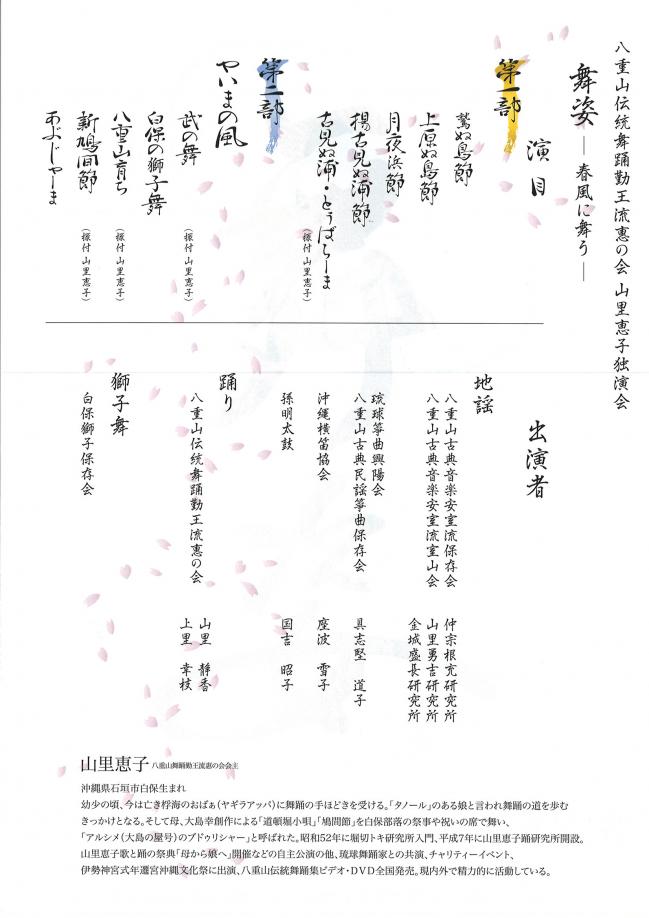 八重山伝統舞踊勤王流惠の会 山里惠子独演会
舞姿 ― 春風に舞う ―
演目
第一部
鷲ぬ鳥節
上原ぬ島節
月夜浜節
揚古見ぬ浦節
古見ぬ浦・とぅばらーま（振付 山里惠子）
第二部
やいまの風
武の舞（振付 山里惠子）
白保の獅子舞
八重山育ち（振付 山里惠子）
新鳩間節（振付 山里惠子）
あぶじゃーま
出演者
地謡
八重山古典音楽安室流保存会 仲宗根充研究所
八重山古典音楽安室流室山会 山里勇吉研究所
金城盛長研究所
琉球箏曲興陽会
八重山古典民謡箏曲保存会 具志堅 道子
沖縄横笛協会 座波 雪子
孫明太鼓 国吉 昭子
踊り
八重山伝統舞踊勤王流惠の会 山里 静香
上里 幸枝
獅子舞
白保獅子保存会
山里恵子 八重山舞踊勤王流惠の会会主
沖縄県石垣市白保生まれ
幼少の頃、今は亡き桴海のおばぁ(ヤギラアッパ)に舞踊の手ほどきを受ける。「タノール」のある娘と言われ舞踊の道を歩む
きっかけとなる。そして母、大島幸創作による「道頓堀小唄」「鳩間節」を白保部落の祭事や祝いの席で舞い、
「アルシメ(大島の屋号)のブドゥリシャー」と呼ばれた。昭和52年に堀切トキ研究所入門、平成7年に山里恵子踊研究所開設。
山里恵子歌と踊の祭典「母から娘へ」開催などの自主公演の他、琉球舞踊家との共演、チャリティーイベント、
伊勢神宮式年遷宮沖縄文化祭に出演、八重山伝統舞踊集ビデオ・DVD全国発売。現内外で精力的に活動している。